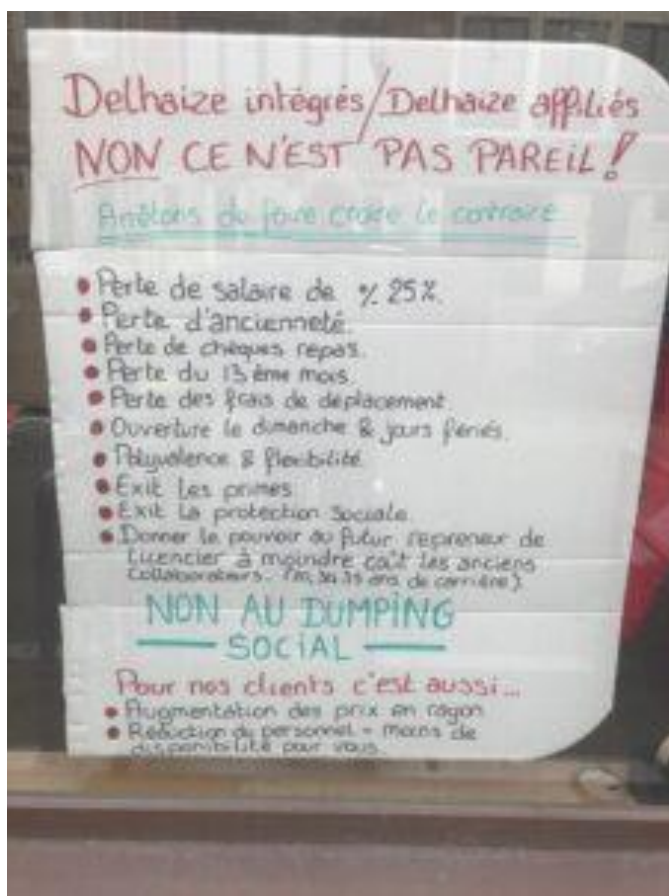 Delhaize intégrés/Delhaize affiliés
NON CE N'EST PAS PAREIL!
Arrêtons de faire croire le contraire
• Perte de salaire de % 25%.
• Perte d'ancienneté.
• Perte de chèques repas.
• Perte du 13ème mois
• Perte des frais de déplacement.
• Ouverture le dimanche & jours fériés.
• Polyvalence & flexibilité
• Exit les primes
• Exit la protection sociale.
• Donner le pouvoir au futur repreneur de
licencier à moindre coût les anciens
collaborateurs. 30 35 ans de carrière)
NON AU DUMPING
SOCIAL
Pour nos clients c'est aussi...
• Augmentation des prix en rayon
• Réduction du personnel = moins de
disponibilité pour vous